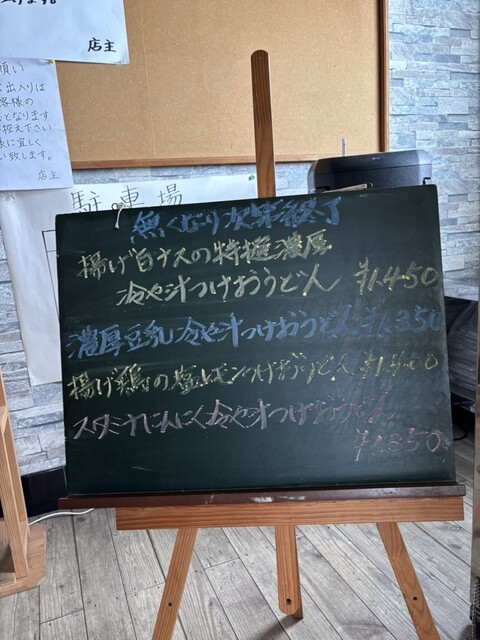 店主
願い
出入りは
客様の
となります
控え下さい
に宜しく
い致します。
店主
駐車場
無くなり次第終了
揚げ白ナスの特選濃厚
冷や汁つけおうどん ¥1.450
濃厚豆乳冷や汁つけおうどん ¥1.350
揚げ鶏の塩レモンつけおうどん ¥1.400
スタミナにんにく冷や汁つけおうどん
¥1.350